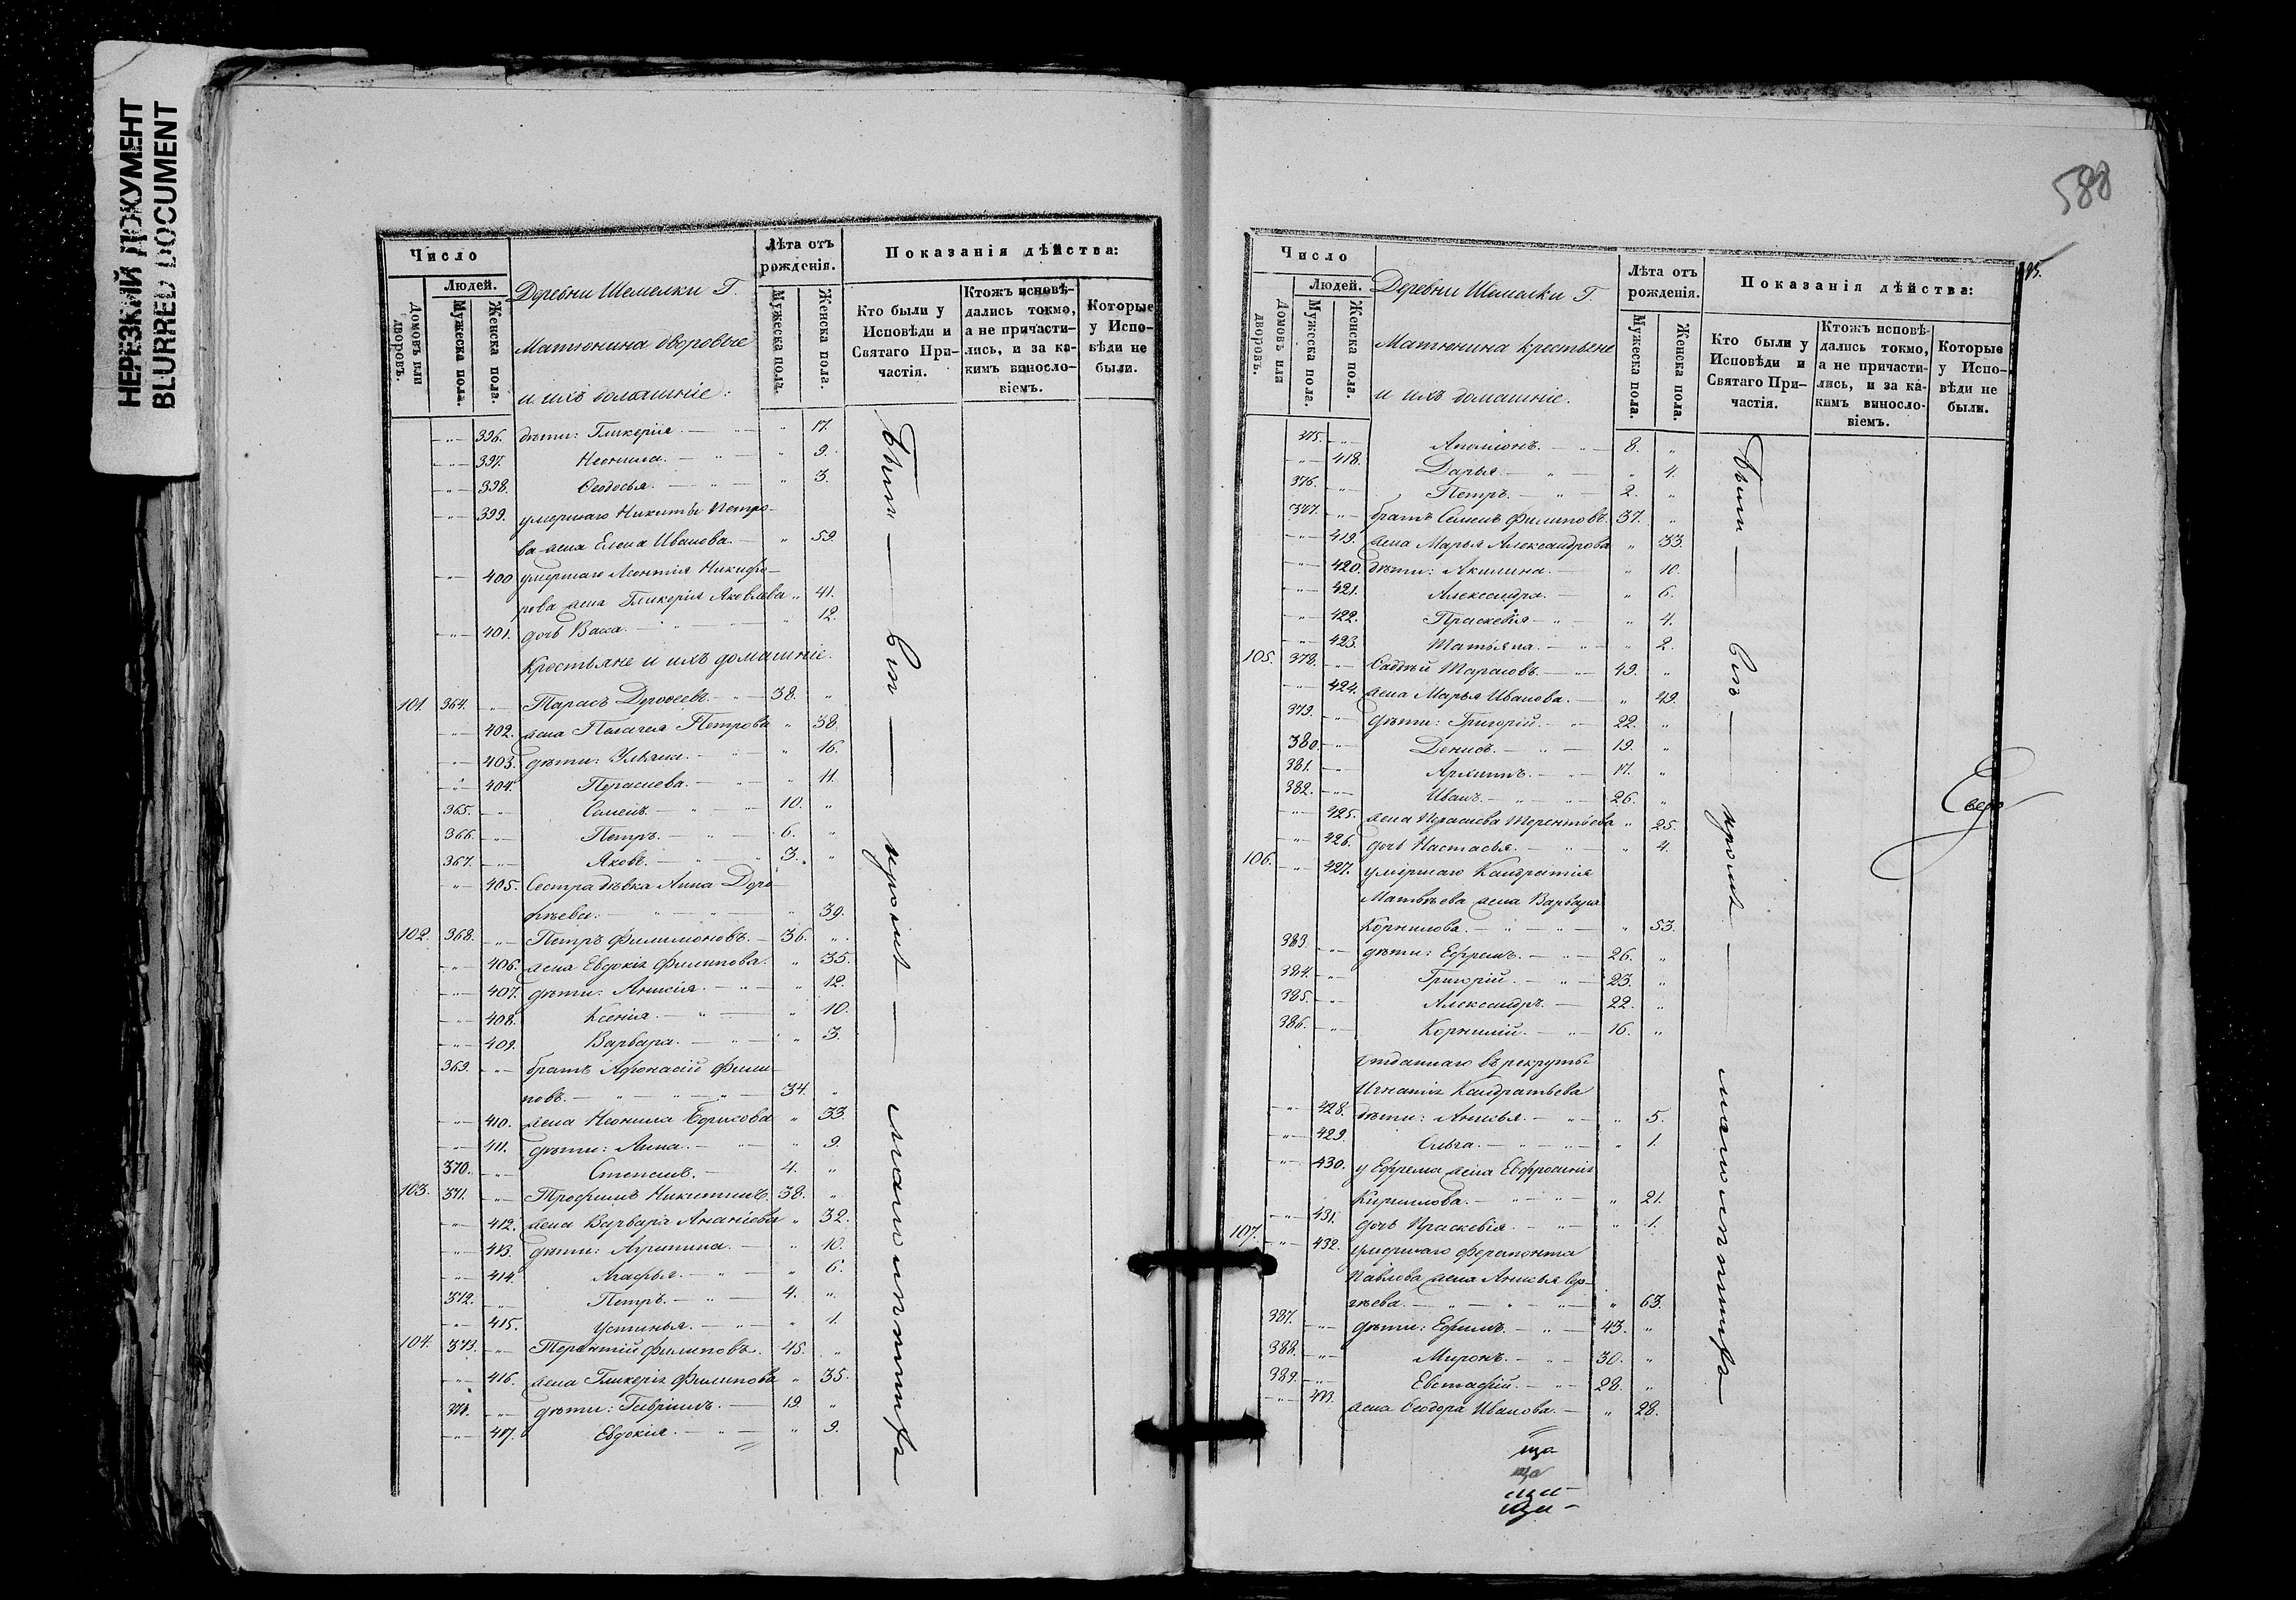 НЕРЕЗКИЙ ДОКУМЕНТ
BLURRED DOCUMENT
Число
Людей.
Домовъ или дворовъ.
Мужеска пола.
Женска пола.
Деревни Шемелки Г.
Матюнина дворовые
и ихъ домашніе:
Лѣта отъ рожденія.
Мужеска пола.
Женска пола.
Показанія дѣйства:
Кто были у Исповѣди и Святаго Причастія.
Ктожъ исповѣдались токмо, а не причастились, и за какимъ винословіемъ.
Которые у Исповѣди не были.
396. дѣти: Гликерія. 17.
397. Неонила. 9.
398. Ѳеодосья. 3.
399. умершаго Никиты Петро-
ва жена Елена Иванова. 59.
400 умершаго Леонтія Никифо-
рова жена Гликерія Яковлева 41.
401. дочь Васса. 12.
Крестьяне и ихъ домашніе.
101. 364. Тарасъ Дороѳеевъ. 38.
402. жена Пелагея Петрова 38.
403. дѣти: Ульяна. 16.
404. Парасиева. 11.
365. Семенъ. 10.
366. Петръ. 6.
367. Яковъ. 3.
405. Сестра дѣвка Анна Доро-
фѣева. 39.
102. 368. Петръ Филимоновъ. 36.
406. жена Евдокія Филипова. 35.
407. дѣти: Анисія. 12.
408. Ксенія. 10.
409. Варвара. 3.
369. братъ Афонасій Фили-
повъ. 34.
410. жена Неонила Борисова 33.
411. дѣти: Анна. 9.
370. Степанъ. 4.
103. 371. Трофимъ Никитинъ. 38.
412. жена Варвара Ананіева 32.
413. дѣти: Агрипина. 10.
414. Агафья. 6.
372. Петръ. 4.
415. Устинья. 1.
104. 373. Терентій Филиповъ. 45.
416. жена Гликерія Филипова 35.
374. дѣти: Гавріилъ. 19
417. Евдокія. 9.
были
кромѣ
588
Число
Людей.
Домовъ или дворовъ.
Мужеска пола.
Женска пола.
Деревни Шемелки Г.
Матюнина крестьяне
и ихъ домашніе.
Лѣта отъ рожденія.
Мужеска пола.
Женска пола.
Показанія дѣйства:
Кто были у Исповѣди и Святаго Причастія.
Ктожъ исповѣдались токмо, а не причастились, и за какимъ винословіемъ.
Которые у Исповѣди не были.
375. 8.
418. Дарья. 4.
376. Петръ. 2.
377. братъ Семенъ Филиповъ. 37.
419. жена Марья Александрова 33.
420. дѣти: Акилина. 10.
421. Александра. 6.
422. Праскевія 4.
423. Татьяна. 2.
105. 378. Ѳаддѣй Тарасовъ. 49.
424. жена Марья Иванова. 49.
379. дѣти: Григорій. 22.
380. Денисъ. 19.
381. Архиппъ. 17.
382. Иванъ. 26.
425. жена Парасиева Терентьева 25.
426. дочь Настасья. 4.
106. 427. умершаго Кандратія
Матвѣева жена Варвара
Корнилова. 53.
383. дѣти: Ефремъ. 26.
384. Григорій. 23.
385. Александръ. 22.
386. Корнилій. 16.
отданнаго въ рекруты
Игнатія Кандратьева
428. дѣти: Анисья. 5.
429. Ольга. 1.
430. у Ефрема жена Евфросинія
Кирилова. 21.
431. дочь Праскевія. 1.
107. 432. умершаго Ферапонта
Павлова жена Анисья
гѣева. 63.
387. дѣти: Ефимъ. 43.
388. Миронъ. 30.
389. Евстафій. 28.
433. жена Ѳеодора Иванова. 28.
были
кромѣ